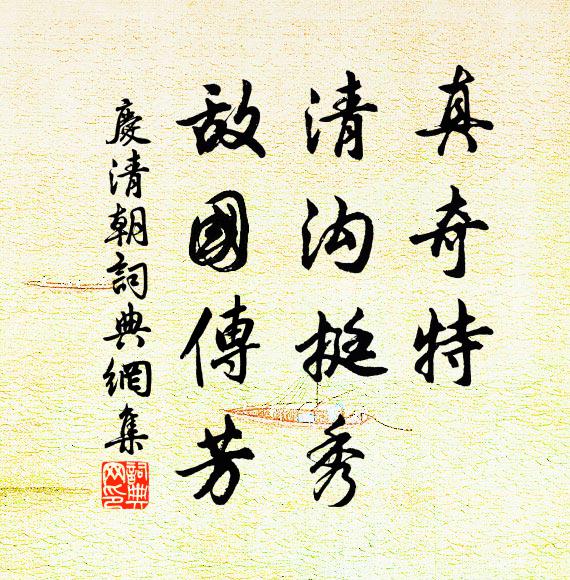 真奇特
清沟挺秀
敌國傳芳
慶清朝詞典網集
詞典网印